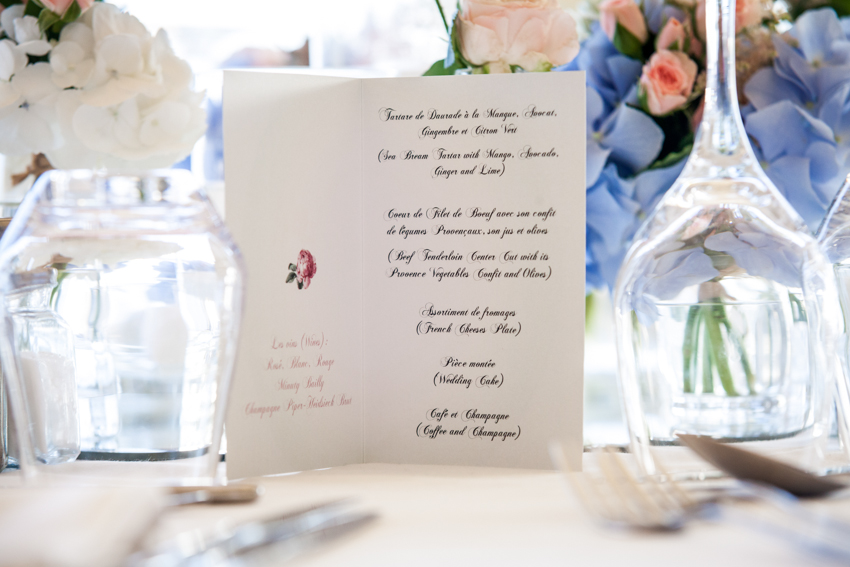 Les vins (Wines):
Rosé, Blanc, Rouge
Minuty Bailly
Champagne Piper-Heidsieck Brut
Tartare de Daurade à la Mangue, Avocat,
Gingembre et Citron Vert
(Sea Bream Tartar with Mango, Avocado,
Ginger and Lime)
Coeur de Filet de Boeuf avec son confit
de légumes Provençaux, son jus et olives
(Beef Tenderloin Center Cut with its
Provence Vegetables Confit and Olives)
Assortiment de fromages
(French Cheeses Plate)
Pièce montée
(Wedding Cake)
Café et Champagne
(Coffee and Champagne)